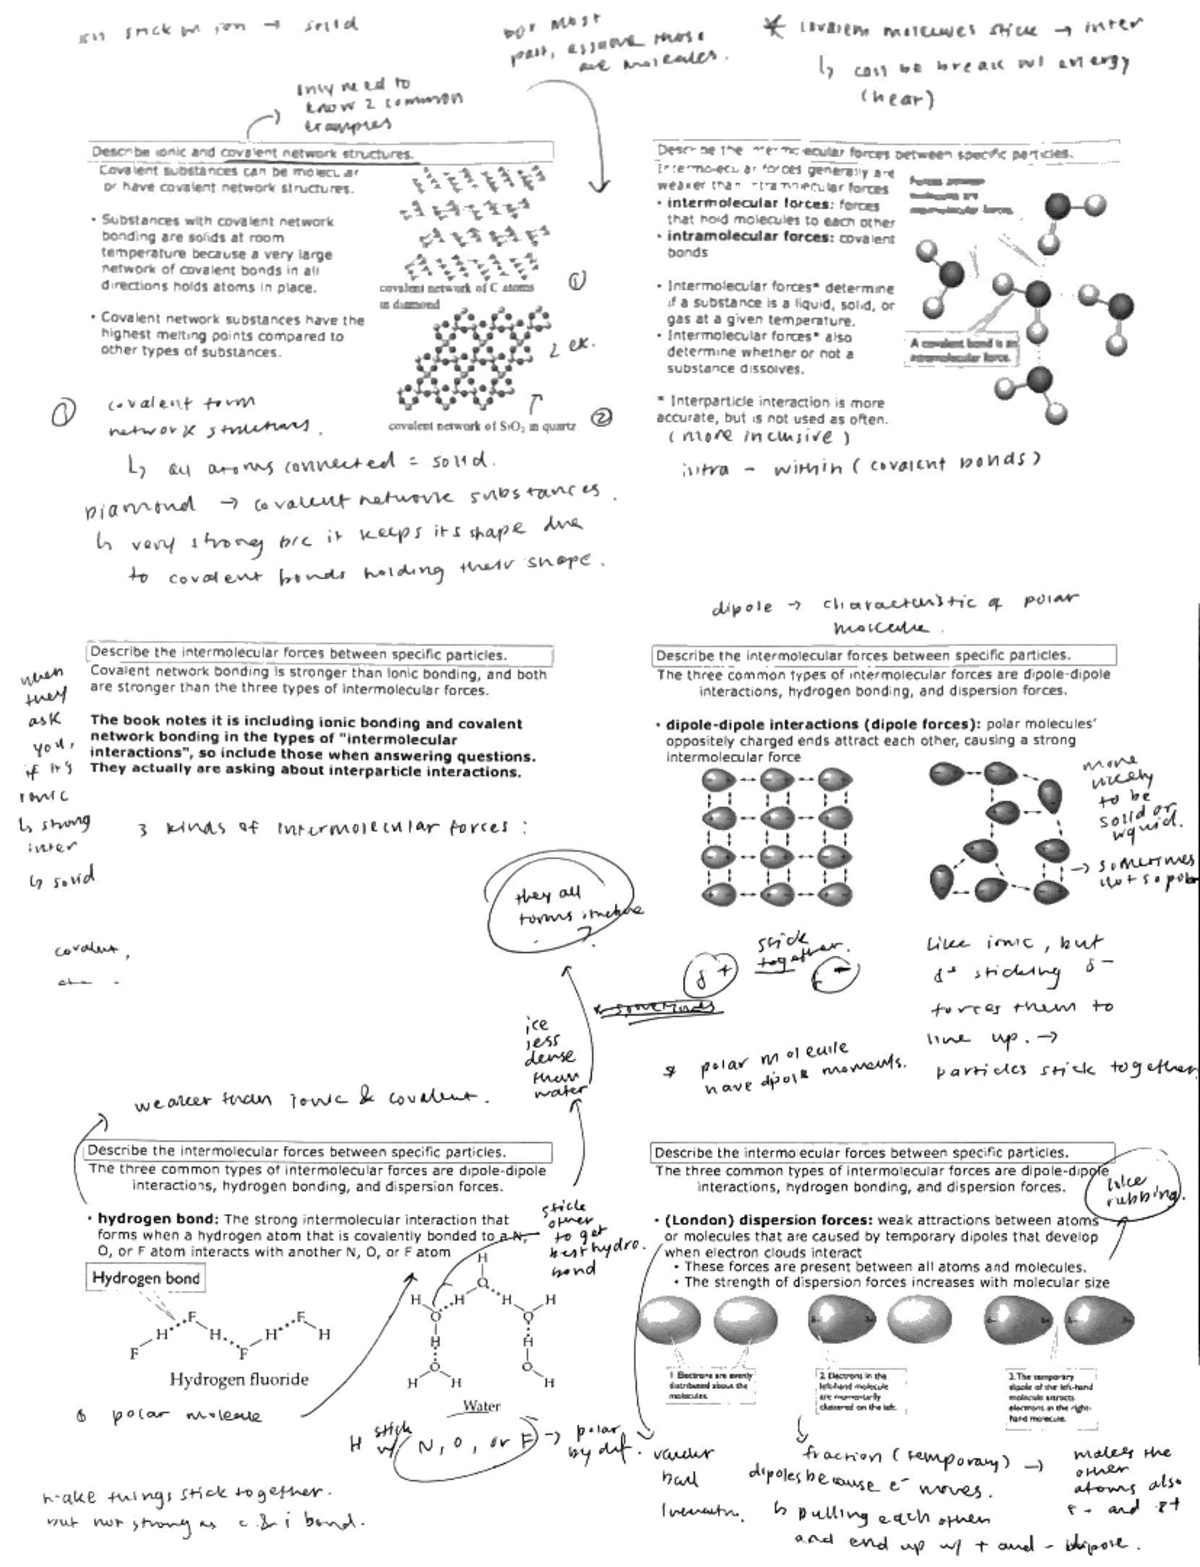 stick w ion → solid
for most
part, assume those
are molecules.
* covalent molecules stick → inter
↳ can be break w/ energy
(heat)
only need to
know 2 common
examples
Describe ionic and covalent network structures.
Covalent substances can be molecular
or have covalent network structures.
• Substances with covalent network
bonding are solids at room
temperature because a very large
network of covalent bonds in all
directions holds atoms in place.
• Covalent network substances have the
highest melting points compared to
other types of substances.
covalent network of C atoms
in diamond
①
2 ex.
covalent network of SiO₂ in quartz ②
① covalent form
network structures.
↳ all atoms connected = solid.
Diamond → covalent network substances.
↳ very strong b/c it keeps its shape due
to covalent bonds holding their shape.
Describe the intermolecular forces between specific particles.
Intermolecular forces generally are
weaker than intramolecular forces
• intermolecular forces: forces
that hold molecules to each other
• intramolecular forces: covalent
bonds
• Intermolecular forces* determine
if a substance is a liquid, solid, or
gas at a given temperature.
• Intermolecular forces* also
determine whether or not a
substance dissolves.
* Interparticle interaction is more
accurate, but is not used as often.
Forces between
molecules are
intermolecular forces.
A covalent bond is an
intramolecular force.
(more inclusive)
intra - within (covalent bonds)
Describe the intermolecular forces between specific particles.
Covalent network bonding is stronger than ionic bonding, and both
are stronger than the three types of intermolecular forces.
The book notes it is including ionic bonding and covalent
network bonding in the types of "intermolecular
interactions", so include those when answering questions.
They actually are asking about interparticle interactions.
when
they
ask
you,
if it's
ionic
↳ strong
inter
↳ solid
3 kinds of intermolecular forces:
they all
forms structure
covalent,
dipole → characteristic of polar
molecule.
Describe the intermolecular forces between specific particles.
The three common types of intermolecular forces are dipole-dipole
interactions, hydrogen bonding, and dispersion forces.
• dipole-dipole interactions (dipole forces): polar molecules'
oppositely charged ends attract each other, causing a strong
intermolecular force
more
likely
to be
solid or
liquid.
→ sometimes
not so polar
δ+ stick
together.
like ionic, but
δ+ sticking δ-
forces them to
line up. →
particles stick together.
* polar molecule
have dipole moments.
ice
less
dense
than
water
weaker than ionic & covalent.
Describe the intermolecular forces between specific particles.
The three common types of intermolecular forces are dipole-dipole
interactions, hydrogen bonding, and dispersion forces.
• hydrogen bond: The strong intermolecular interaction that
forms when a hydrogen atom that is covalently bonded to a N,
O, or F atom interacts with another N, O, or F atom
stick
other
to get
best hydro.
bond
Hydrogen bond
F H F H F H F H
Hydrogen fluoride
H O H
Water
polar molecule
H stick
w/ (N, O, or F) → polar
by def.
make things stick together.
but not strong as c & i bond.
Describe the intermolecular forces between specific particles.
The three common types of intermolecular forces are dipole-dipole
interactions, hydrogen bonding, and dispersion forces.
like
rubbing.
• (London) dispersion forces: weak attractions between atoms
or molecules that are caused by temporary dipoles that develop
when electron clouds interact
• These forces are present between all atoms and molecules.
• The strength of dispersion forces increases with molecular size
1. Electrons are evenly
distributed about the
molecules.
2. Electrons in the
left-hand molecule
are momentarily
clustered on the left.
3. The temporary
dipole of the left-hand
molecule attracts
electrons in the right-
hand molecule.
fraction (temporary) →
dipoles because e⁻ moves.
↳ pulling each other
and end up w/ + and - dipole.
makes the
other
atoms also
δ- and δ+